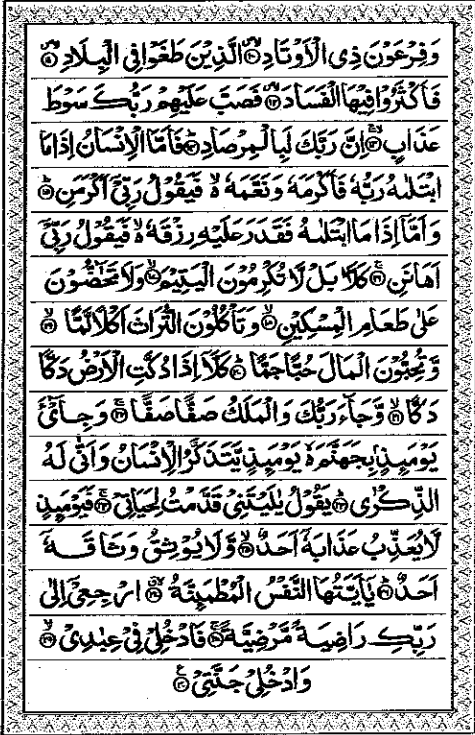 وَفِرْعَوْنَ ذِي الْاَوْتَادِ ۝۱۰ الَّذِيْنَ طَغَوْا فِي الْبِلَادِ ۝۱۱
فَاَكْثَرُوْا فِيْهَا الْفَسَادَ ۝۱۲ فَصَبَّ عَلَيْهِمْ رَبُّكَ سَوْطَ
عَذَابٍ ۝۱۳ اِنَّ رَبَّكَ لَبِالْمِرْصَادِ ۝۱۴ فَاَمَّا الْاِنْسَانُ اِذَا مَا
ابْتَلٰىهُ رَبُّهٗ فَاَكْرَمَهٗ وَنَعَّمَهٗ ۙ فَيَقُوْلُ رَبِّيْٓ اَكْرَمَنِ ۝۱۵
وَاَمَّآ اِذَا مَا ابْتَلٰىهُ فَقَدَرَ عَلَيْهِ رِزْقَهٗ ۙ فَيَقُوْلُ رَبِّيْٓ
اَهَانَنِ ۝۱۶ كَلَّا بَلْ لَّا تُكْرِمُوْنَ الْيَتِيْمَ ۝۱۷ وَلَا تَحٰٓضُّوْنَ
عَلٰى طَعَامِ الْمِسْكِيْنِ ۝۱۸ وَتَاْكُلُوْنَ التُّرَاثَ اَكْلًا لَّمًّا ۝۱۹
وَّتُحِبُّوْنَ الْمَالَ حُبًّا جَمًّا ۝۲۰ كَلَّآ اِذَا دُكَّتِ الْاَرْضُ دَكًّا
دَكًّا ۝۲۱ وَّجَآءَ رَبُّكَ وَالْمَلَكُ صَفًّا صَفًّا ۝۲۲ وَجِایْٓءَ
يَوْمَىِٕذٍۭ بِجَهَنَّمَ ۙ يَوْمَىِٕذٍ يَّتَذَكَّرُ الْاِنْسَانُ وَاَنّٰى لَهُ
الذِّكْرٰى ۝۲۳ يَقُوْلُ يٰلَيْتَنِيْ قَدَّمْتُ لِحَيَاتِيْ ۝۲۴ فَيَوْمَىِٕذٍ
لَّا يُعَذِّبُ عَذَابَهٗٓ اَحَدٌ ۝۲۵ وَّلَا يُوْثِقُ وَثَاقَهٗٓ
اَحَدٌ ۝۲۶ يٰٓاَيَّتُهَا النَّفْسُ الْمُطْمَىِٕنَّةُ ۝۲۷ ارْجِعِيْٓ اِلٰى
رَبِّكِ رَاضِيَةً مَّرْضِيَّةً ۝۲۸ فَادْخُلِيْ فِيْ عِبٰدِيْ ۝۲۹
وَادْخُلِيْ جَنَّتِيْ ۝۳۰